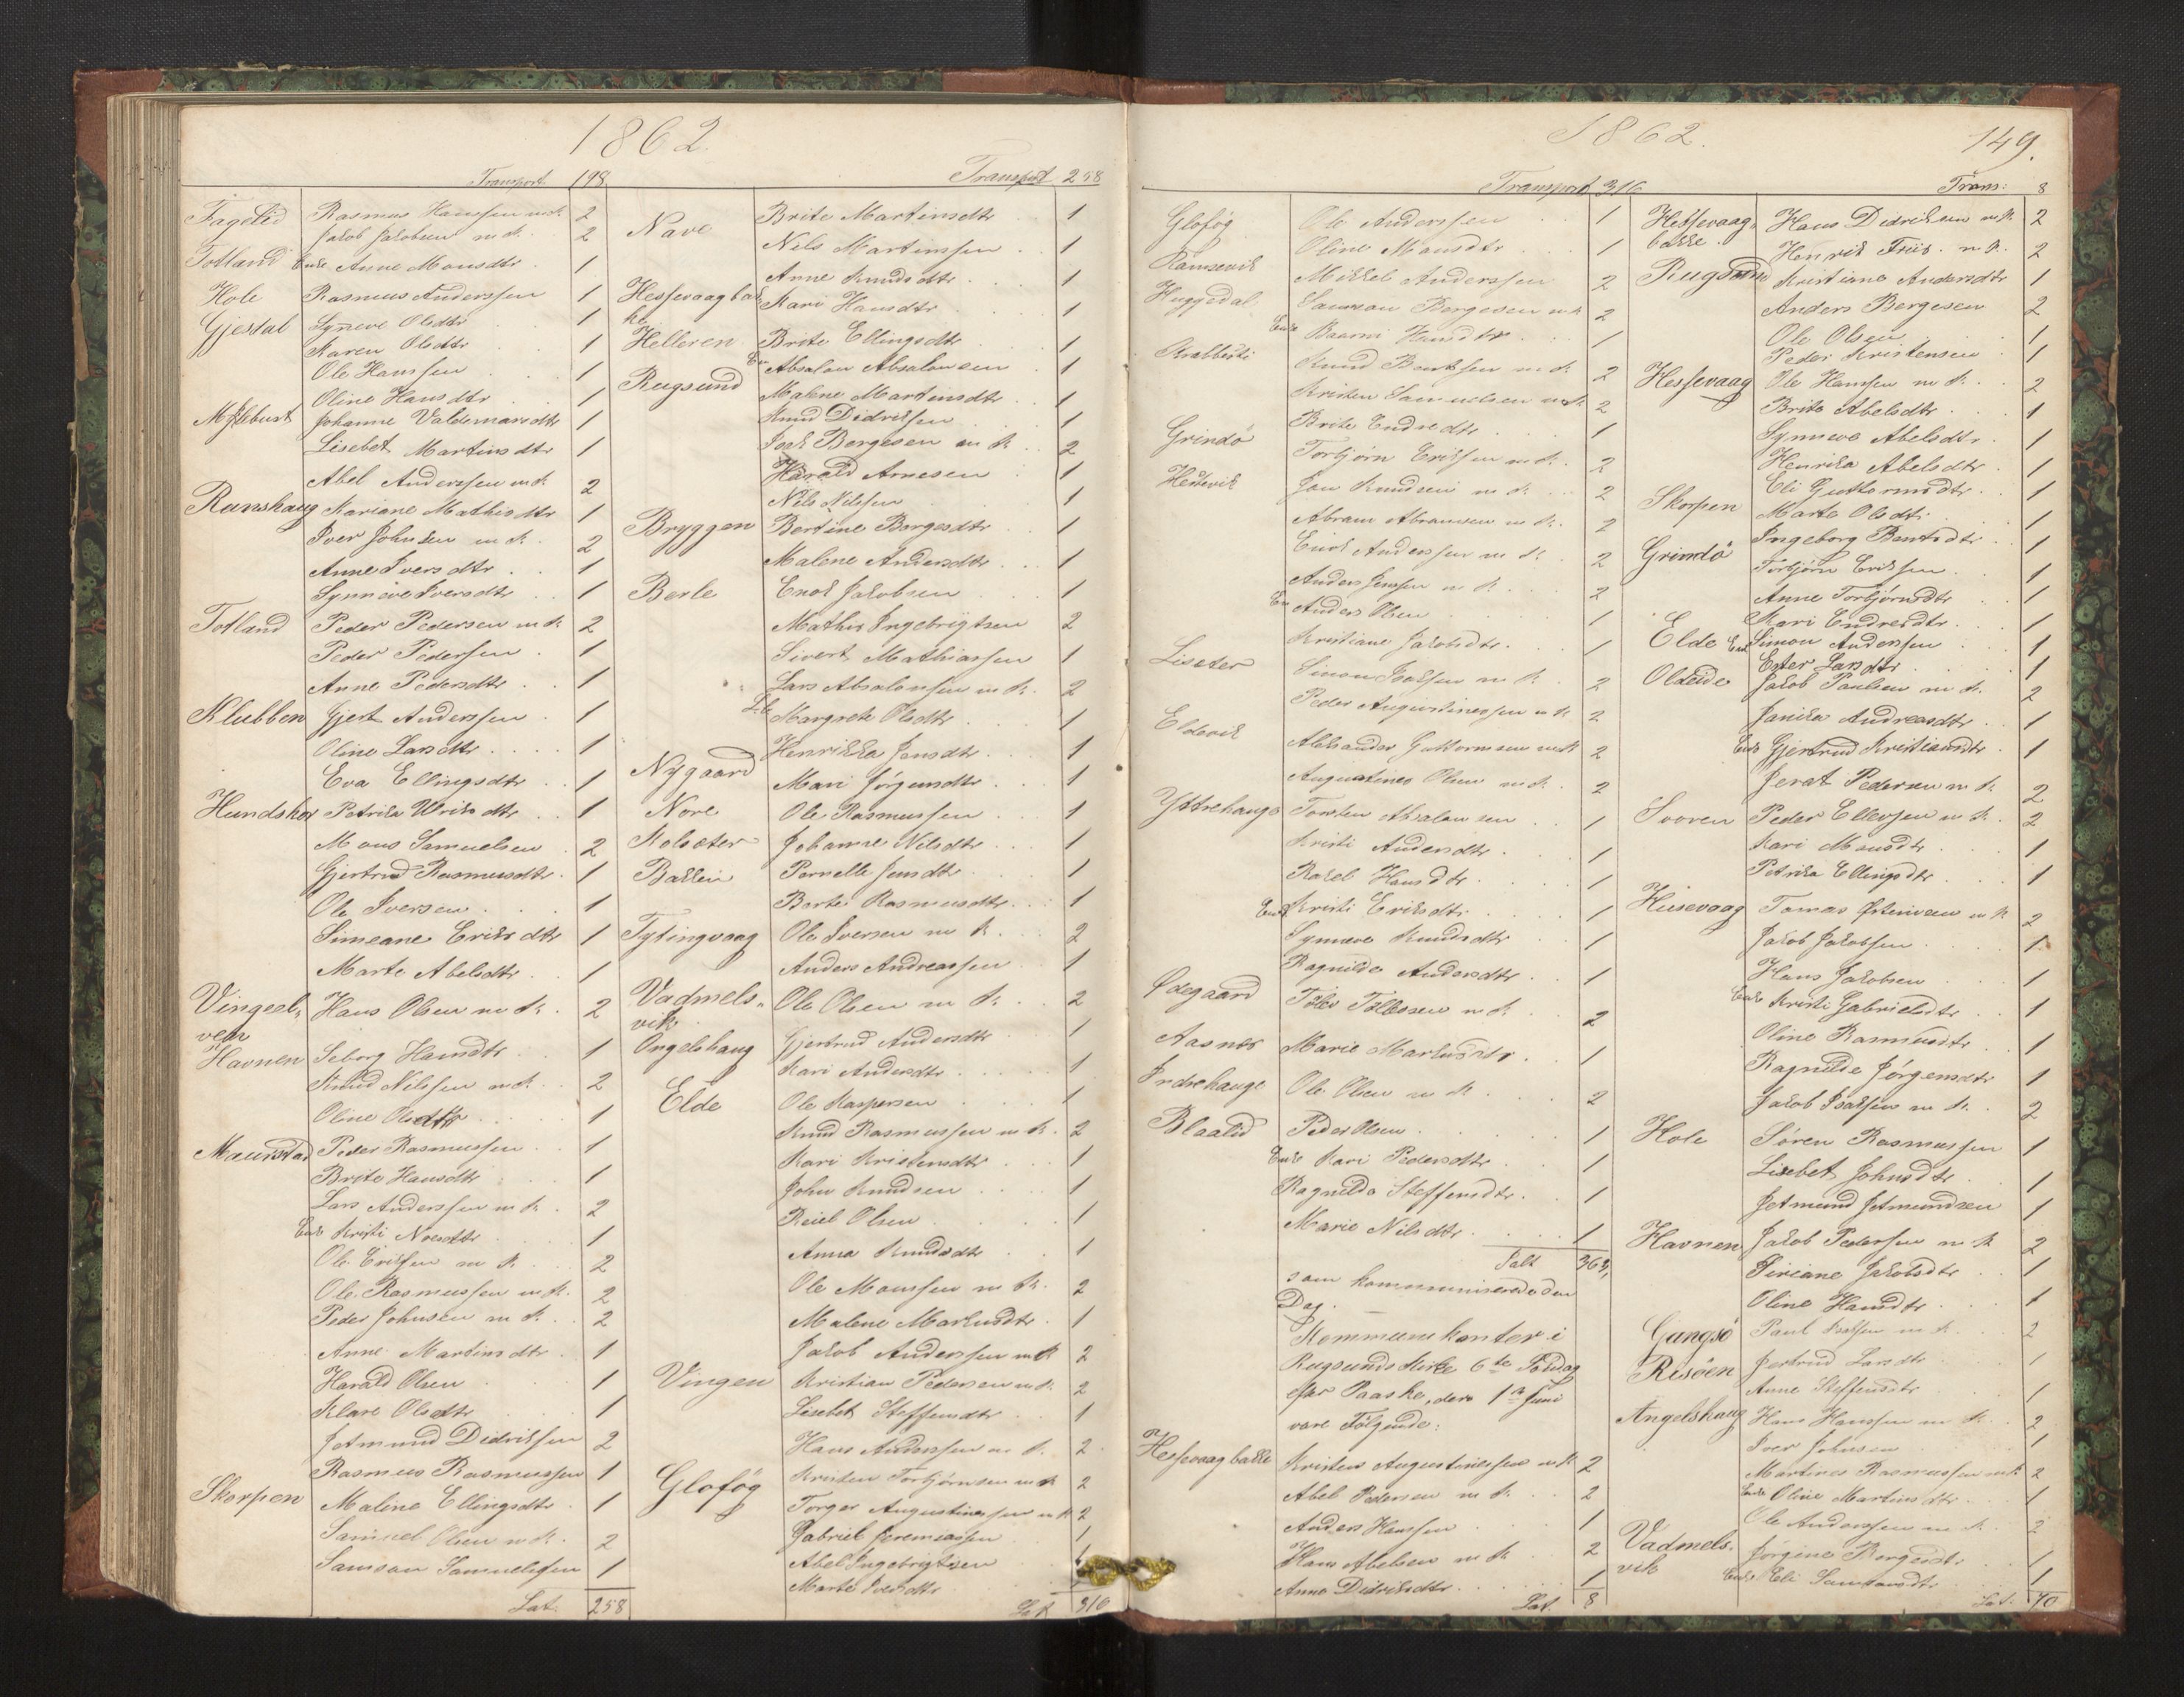 1862.
Transport. 198
Fagelid Rasmus Hanssen m. K. 2
Jakob Jakobsen m. K. 2
Totland Enke Anne Monsdtr. 1
Hole Rasmus Anderssen 1
Gjestal Synneve Olsdtr 1
Karen Olsdtr 1
Ole Hanssen 1
Oline Hansdtr 1
Myklebust Johanne Valdemarsdtr 1
Lisebet Martinsdtr 1
Abel Anderssen m. K. 2
Runshaug Mariane Mathisdtr 1
Iver Johnsen m. K. 2
Anne Iversdtr 1
Synneve Iversdtr 1
Totland Peder Pedersen m. K. 2
Peder Pedersen 1
Anne Pedersdtr 1
Klubben Gjert Anderssen 1
Oline Larsdtr 1
Eva Ellingsdtr 1
Hundskor Petrika Ulriksdtr 1
Mons Samuelsen 2
Gjertrud Rasmusdtr. 1
Ole Iversen 1
Simeane Eriksdtr 1
Marte Abelsdtr. 1
Vingeel- Hans Olsen m. K. 2
ven
Havnen Seborg Hansdtr. 1
Knud Nilssen m. K. 2
Oline Olsdtr 1
Maurstad Peder Rasmussen 1
Brite Hansdtr 1
Lars Anderssen m. K. 2
Enke Kristi 1
Ole Erikssen m. K. 2
Ole Rasmussen m. K. 2
Peder Johnsen m. K. 2
Anne Martinsdtr. 1
Harald Olsen 1
Klare Olsdtr 1
Jetmund Didriksen 2
Rasmus Rasmussen 1
Skorpen Malene Ellingsdtr. 1
Samuel Olsen m. K. 2
Samson Samuelsen 1
Lat. 258
Transport 258
Nave Brite Martinsdtr 1
Nils Martinssen 1
Anne Knudsdtr 1
Hessevaagbak- Kari Hansdtr 1
ke
Helleren Brite Ellingsdtr 1
Absalon Absalonsen 1
Rugsund Malene Martinsdtr. 1
Knud Didrikssen 1
Isak Borgesen m. K. 2
Harald Arnesen 1
Nils Nilssen 1
Bryggen Bertine Borgesdtr 1
Malene Andersdtr 1
Berle Enok Jakobsen 1
Mathis Ingebrigtsen 2
Sivert Mathiassen 1
Lars Absalonsen m. K. 2
Margrete Olsdtr. 1
Henrikka Jensdtr. 1
Nygaard Mari Jørgensdtr. 1
Nore Ole Rasmussen 1
Kolseter Johanne Nilsdtr. 1
Bakken Pernelle Jensdtr. 1
Berte Rasmusdtr. 1
Tytingvaag Ole Iversen m. K. 2
Anders Andreassen 1
Vadmels- Ole Olsen m. K. 2
vik
Ongelshaug Gjertrud Andersdtr 1
Kari Andersdtr. 1
Elde Ole Kaspersen 1
Knud Rasmussen m. K. 2
Kari Kristensdtr 1
John Knudsen 1
Reiel Olsen 1
Anna Knudsdtr 1
Ole Monssen m. K. 2
Malene Markusdtr. 1
Jakob Anderssen m. K. 2
Vingen Kristian Pedersen m. K. 2
Lisebet Steffensdtr 1
Hans Anderssen m. K. 2
Gloføg Kristen Torbjørnsen m. K. 2
Torger Augustinussen m. K. 2
Gabriel Jeremiassen 1
Abel Ingebrigtsen
Marte Iversdtr
Lat. 316
1862. 149.
Transport 316
Gloføg Ole Anderssen 1
Oline Monsdtr 1
Ramsevik Mikkel Anderssen 2
Huggedal Samson Borgesen m. K. 2
Enke Hansdtr 1
Knud Bentsen m. K. 2
Kristen Samuelsen m. K. 2
Brite Endredtr 1
Grindø Torbjørn Erikssen m. K. 2
Hennevik Jon Knudsen m. K. 2
Abram Abramsen m. K. 2
Anderssen m. K. 2
Anders Jenssen m. K. 2
Anders Olsen 1
Kristiane Jakobsdtr. 1
Liseter Simon Isaksen m. K. 2
Peder Augustinussen m. K. 2
Eldevik Aleksander Guttormsen m. K. 2
Augustinus Olsen m. K. 2
Yttrehauge Torsten Absalonsen 1
Kristi Andersdtr. 1
Rakel Hansdtr. 1
Enke Kristi Eriksdtr. 1
Synneve Knudsdtr 1
Ragnilde Andersdtr. 1
Ødegaard Tollef Tollessen m. K. 2
Aasnes Marie Markusdtr. 1
Indrehauge Ole Olsen m. K. 2
Blaalid Peder Olsen 1
Enke Kari Pedersdtr. 1
Ragnilda Steffensdtr. 1
Marie Nilsdtr. 1
Talt 363,
som kommuniserede den
Dag.
Kommunikanter i
Rugsunds Kirke 6te Søndag
efter Paaske, den 1ste Juni
vare Følgende:
Hessevaagbakke Kristen Augustinussen m. K. 2
Abel Pedersen m. K. 2
Anders Hanssen 1
Hans Abelsen m. K. 2
Anne Didriksdtr. 1
Lat. 8
Trans: 8
Hessevaag- Hans Didriksen m. K. 2
bakke. Henrik Friis m. K. 2
Rugsund Kristiane Andersdtr 1
Anders Borgesen 2
Ole Olsen 1
Peder Kristensen 1
Hessevaag Ole Hanssen m. K. 2
Brite Abelsdtr. 1
Synneve Abelsdtr. 1
Henrika Abelsdtr. 1
Eli Guttormsdtr. 1
Skorpen Marte Olsdtr. 1
Ingeborg Bentsdtr. 1
Grindø Torbjørn Erikssen 1
Anne Torbjørnsdtr 1
Kari Endresdtr. 1
Elde Simon Anderssen 1
Ester Larsdtr 1
Oldeide Jakob Paulsen m. K. 2
Janika Andreasdtr. 1
Enke Gjertrud Kristiansdtr. 1
Jeret Pedersen m. K. 2
Svoren Peder Ellevsen m. K. 2
Kari Monsdtr. 1
Petrika Ellingsdtr. 1
Husevaag Tomas Østensen m. K. 2
Jakob Jakobsen 1
Hans Jakobsen 1
Enke Kristi Gabrielsdtr 1
Oline Rasmusdtr. 1
Ragnilde Jørgensdtr 1
Jakob Isaksen m. K. 2
Hole Søren Rasmussen 1
Lisebet Johnsdtr. 1
Jetmund Jetmundsen 1
Havnen Jakob Pedersen m. K. 2
Siriane Jakobsdtr 1
Oline Hansdtr. 1
Gangsø Paul Isaksen m. K. 2
Risøen Jertrud Larsdtr 1
Anne Steffensdtr 1
Angelshaug Hans Hanssen m. K. 2
Iver Johnsen 1
Martines Rasmussen m. K. 2
Enke Oline Martinsdtr. 1
Ole Anderssen m. K. 2
Vadmels- Jørgine Borgesdtr. 1
vik Enke Eli Samsonsdtr. 1
Lat. 70